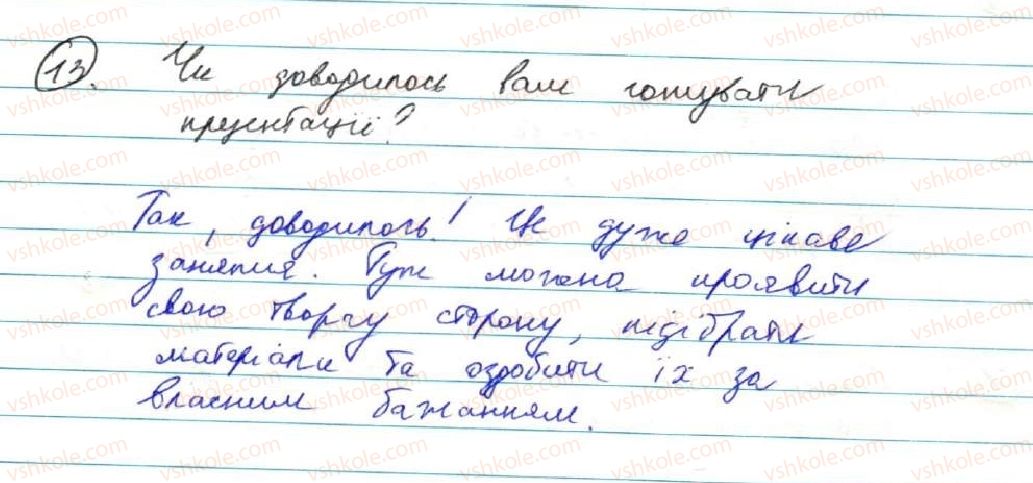 13. Чи доводилось Вам готувати
презентації?
Так, доводилось! Це дуже цікаве
заняття. Тут можна проявити
свою творчу сторону, підібрати
матеріали та оздобити їх за
власним бажанням.